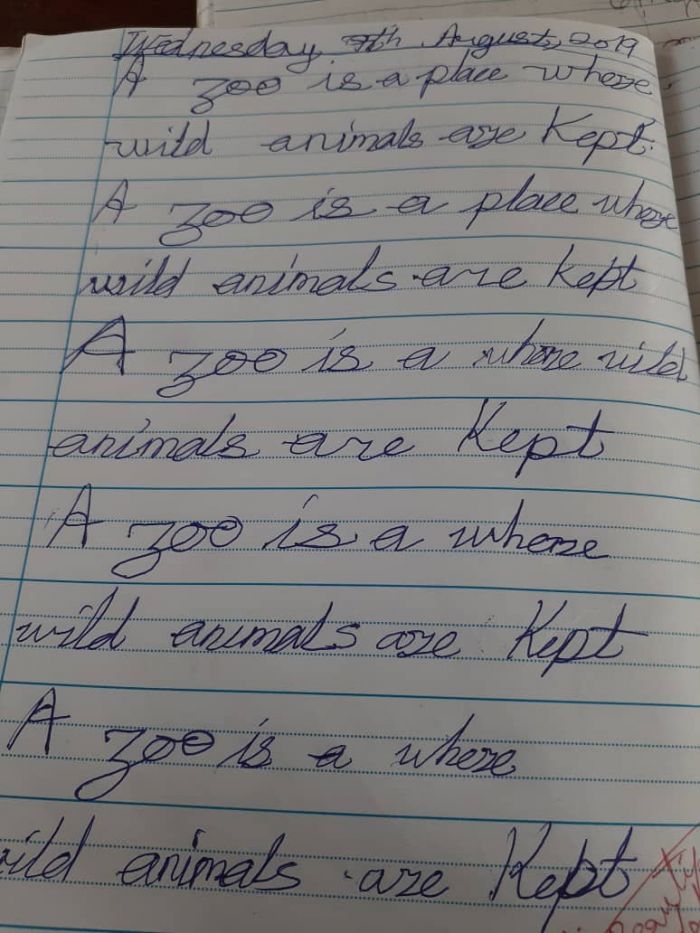 Wednesday 7th August, 2019
A zoo is a place where
wild animals are Kept.
A zoo is a place where
wild animals are kept
A zoo is a where wild
animals are Kept
A zoo is a where
wild animals are Kept
A zoo is a where
wild animals are Kept